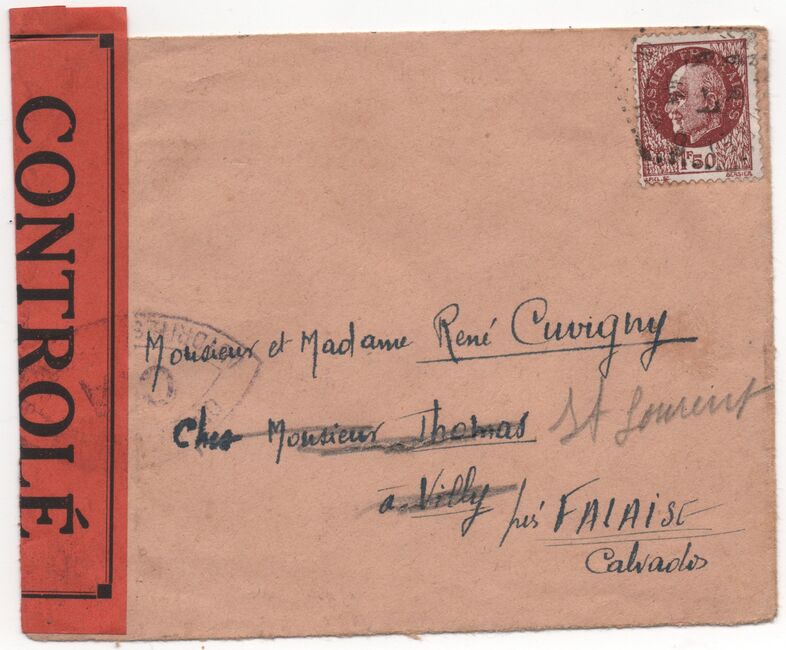 CONTROLÉ
POSTES FRANÇAISES
1F50
BERSIER
Monsieur et Madame René Cuvigny
Chez Monsieur Thomas St Laurent
à Villy près FALAISE
Calvados